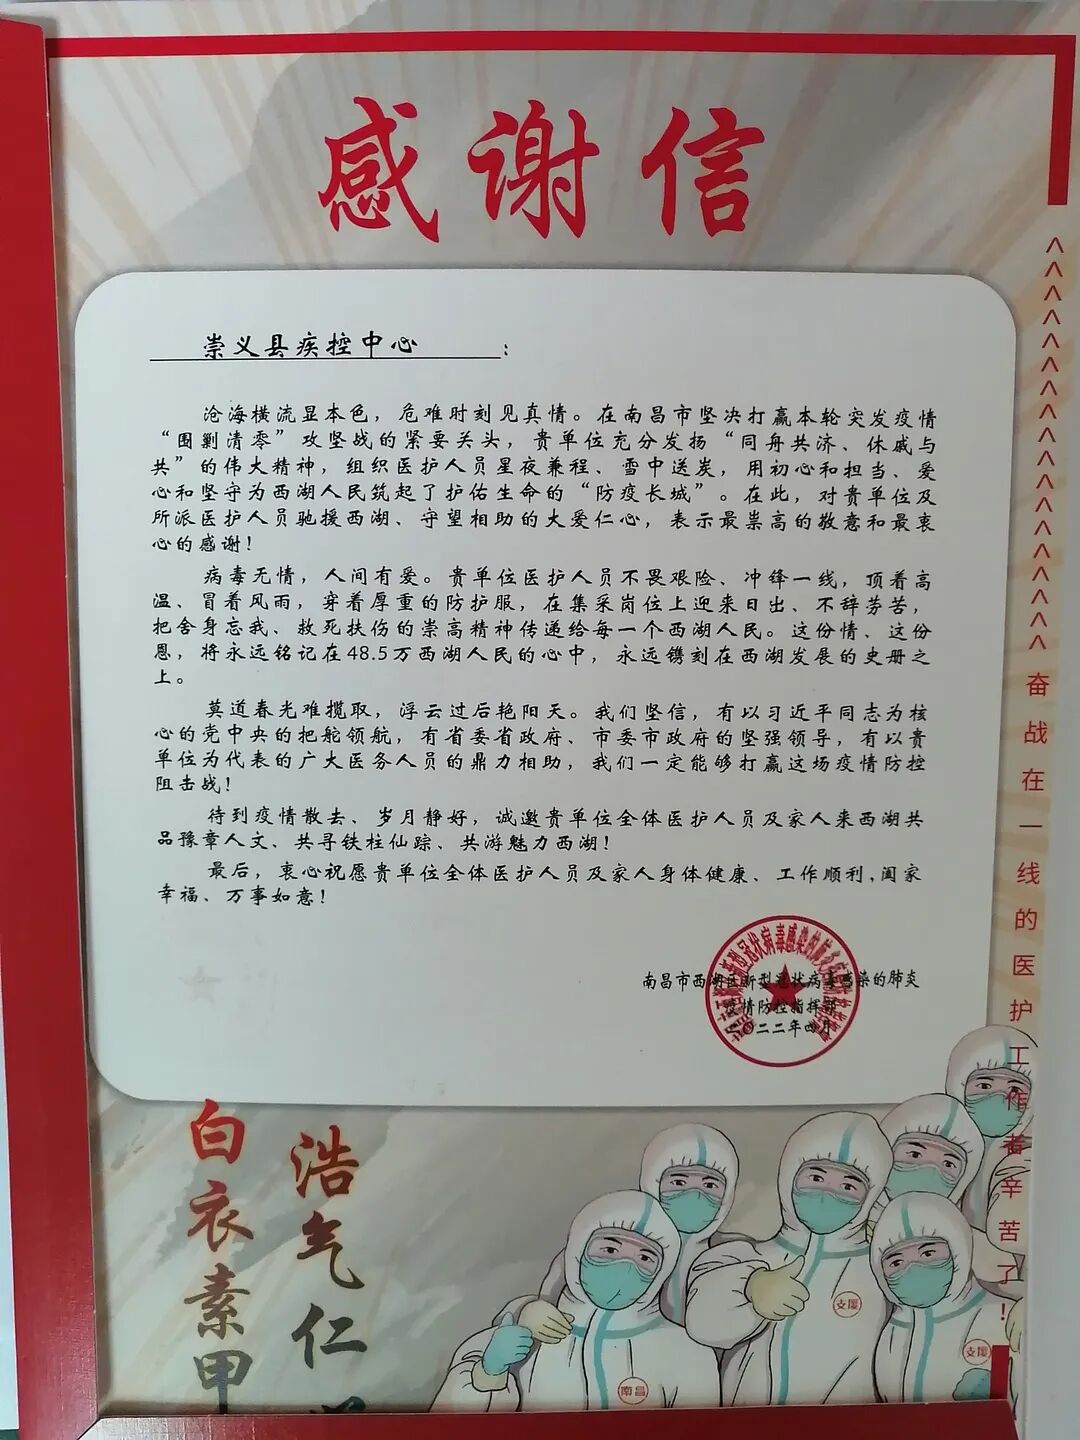 感谢信
崇义县疾控中心：
沧海横流显本色，危难时刻见真情。在南昌市坚决打赢本轮突发疫情
“围剿清零”攻坚战的紧要关头，贵单位充分发扬“同舟共济、休戚与
共”的伟大精神，组织医护人员星夜兼程、雪中送炭，用初心和担当、爱
心和坚守为西湖人民筑起了护佑生命的“防疫长城”。在此，对贵单位及
所派医护人员驰援西湖、守望相助的大爱仁心，表示最崇高的敬意和最衷
心的感谢！
病毒无情，人间有爱。贵单位医护人员不畏艰险、冲锋一线，顶着高
温、冒着风雨，穿着厚重的防护服，在集采岗位上迎来日出、不辞劳苦，
把舍身忘我、救死扶伤的崇高精神传递给每一个西湖人民。这份情、这份
恩，将永远铭记在48.5万西湖人民的心中，永远镌刻在西湖发展的史册之
上。
莫道春光难揽取，浮云过后艳阳天。我们坚信，有以习近平同志为核
心的党中央的把舵领航，有省委省政府、市委市政府的坚强领导，有以贵
单位为代表的广大医务人员的鼎力相助，我们一定能够打赢这场疫情防控
阻击战！
待到疫情散去、岁月静好，诚邀贵单位全体医护人员及家人来西湖共
品豫章人文、共寻铁柱仙踪、共游魅力西湖！
最后，衷心祝愿贵单位全体医护人员及家人身体健康、工作顺利,阖家
幸福、万事如意！
南昌市西湖区新型冠状病毒感染的肺炎
疫情防控指挥部
二〇二二年四月
奋战在一线的医护工作者辛苦了！
白衣素甲
浩气仁
南昌
支援
支援